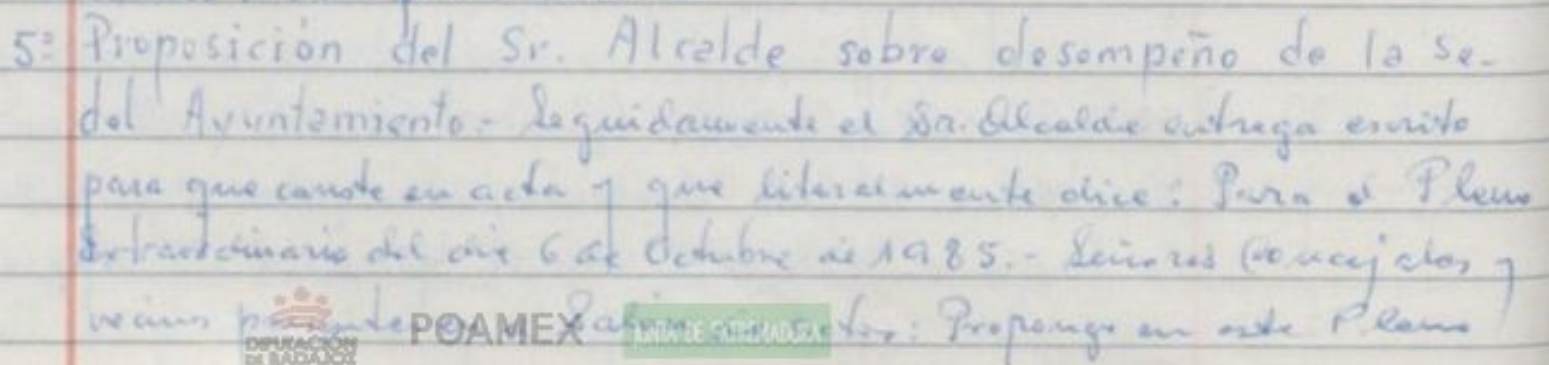 5º Proposición del Sr. Alcalde sobre desempeño de la Se-
del Ayuntamiento.- Seguidamente el Sr. Alcalde entrega escrito
para que conste en acta y que literalmente dice: Para el Pleno
Extraordinario del día 6 de Octubre de 1985.- Señores Concejales y
vecinos : Propongo en este Pleno
DIPUTACIÓN DE BADAJOZ
POAMEX
JUNTA DE EXTREMADURA